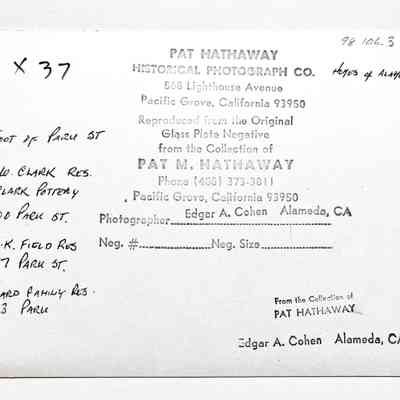 98.106.3
X 37
PAT HATHAWAY
HISTORICAL PHOTOGRAPH CO.
568 Lighthouse Avenue
Pacific Grove, California 93950
Reproduced from the Original
Glass Plate Negative
from the Collection of
PAT M. HATHAWAY
Phone (408) 373-3811
Pacific Grove, California 93950
Photographer Edgar A. Cohen Alameda, CA
Neg. # Neg. Size
OOT OF PARK ST
CLARK RES.
LARK POTTERY
PARK ST.
K. FIELD RES
7 PARK ST.
ARD FAMILY RES.
3 PARK
From the Collection of
PAT HATHAWAY
Edgar A. Cohen Alameda, CA